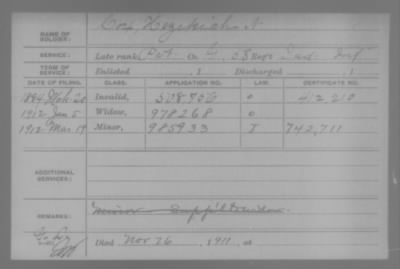 NAME OF SOLDIER: Cox, Hezekiah N.
SERVICE: Late rank, Pvt. Co. G, 58 Reg't Ind Inf
TERM OF SERVICE: Enlisted , 1 Discharged , 1
DATE OF FILING. CLASS. APPLICATION NO. LAW. CERTIFICATE NO.
1884 Mch 20 Invalid, 0 412,210
1912 Jan 5 Widow, 978268 0
1912 Mar 19 Minor, 985933 T 742,711
ADDITIONAL SERVICES:
REMARKS:
Died Nov 26, 1911, at